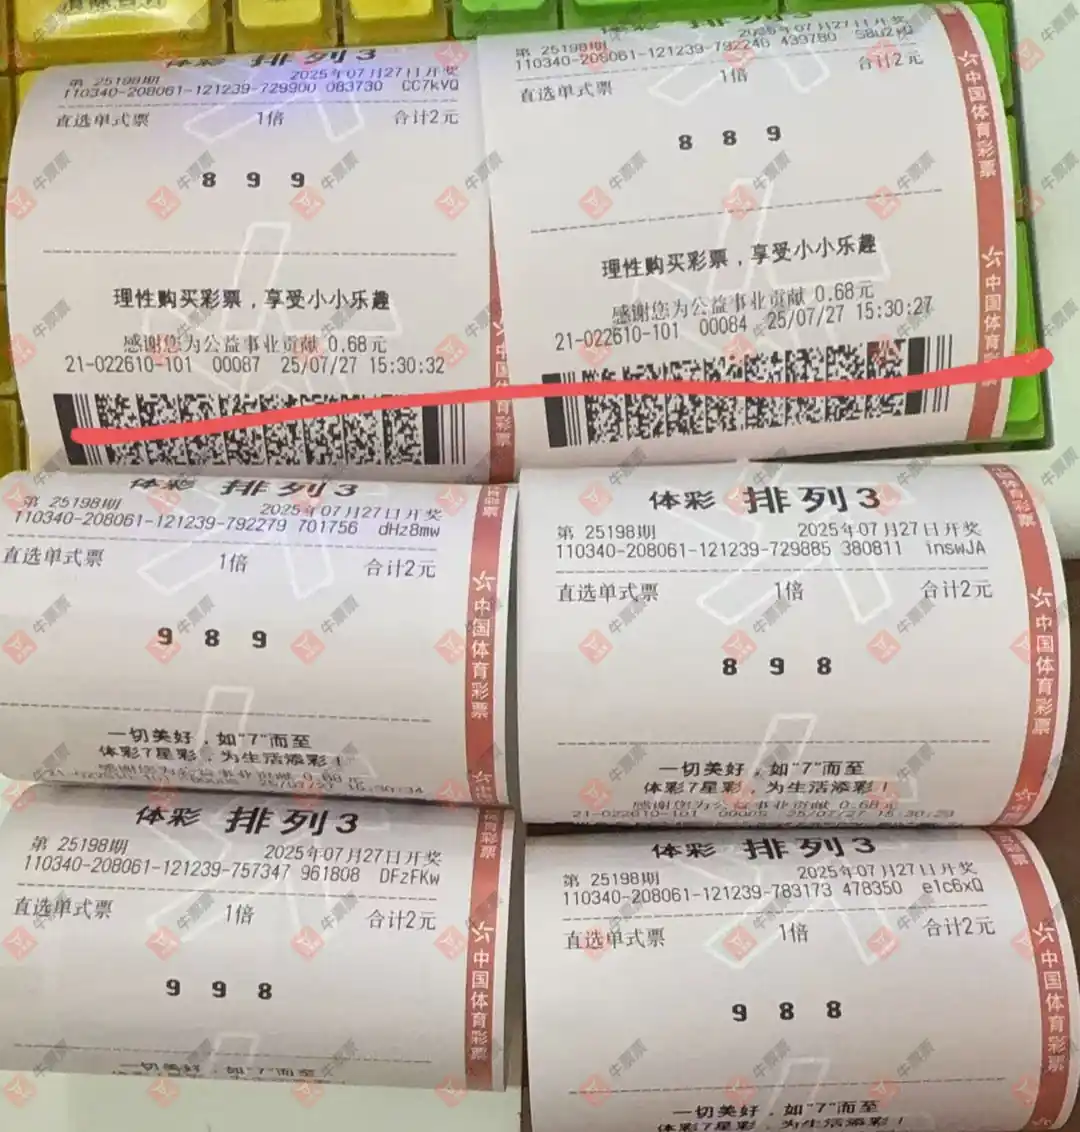 清除自动
体彩 排列3
第 25198期 2025年07月27日开奖
110340-208061-121239-729900 083730 CC7kVQ
直选单式票 1倍 合计2元
8 9 9
理性购买彩票，享受小小乐趣
感谢您为公益事业贡献 0.68元
21-022610-101 00087 25/07/27 15:30:32
中国体育彩票
排列3
第 25198期 2025年07月27日开奖
110340-208061-121239-792246 439780
直选单式票 1倍 合计2元
8 8 9
理性购买彩票，享受小小乐趣
感谢您为公益事业贡献 0.68元
21-022610-101 00084 25/07/27 15:30:27
中国体育彩票
中国体育彩票
体彩 排列3
第 25198期 2025年07月27日开奖
110340-208061-121239-792279 701756 dHz8mw
直选单式票 1倍 合计2元
9 8 9
一切美好，如"7"而至
体彩7星彩，为生活添彩！
感谢您为公益事业贡献 0.68元
21-022610-101 25/07/27 15:30:34
中国体育彩票
体彩 排列3
第 25198期 2025年07月27日开奖
110340-208061-121239-729885 380811 inswJA
直选单式票 1倍 合计2元
8 9 8
一切美好，如"7"而至
体彩7星彩，为生活添彩！
感谢您为公益事业贡献 0.68元
21-022610-101 25/07/27 15:30:29
中国体育彩票
体彩 排列3
第 25198期 2025年07月27日开奖
110340-208061-121239-757347 961808 DFzFKw
直选单式票 1倍 合计2元
9 9 8
一切美好，如"7"而至
中国体育彩票
体彩 排列3
第 25198期 2025年07月27日开奖
110340-208061-121239-783173 478350 e1c6xQ
直选单式票 1倍 合计2元
9 8 8
一切美好，如"7"而至
体彩7星彩，为生活添彩！
中国体育彩票
牛票票